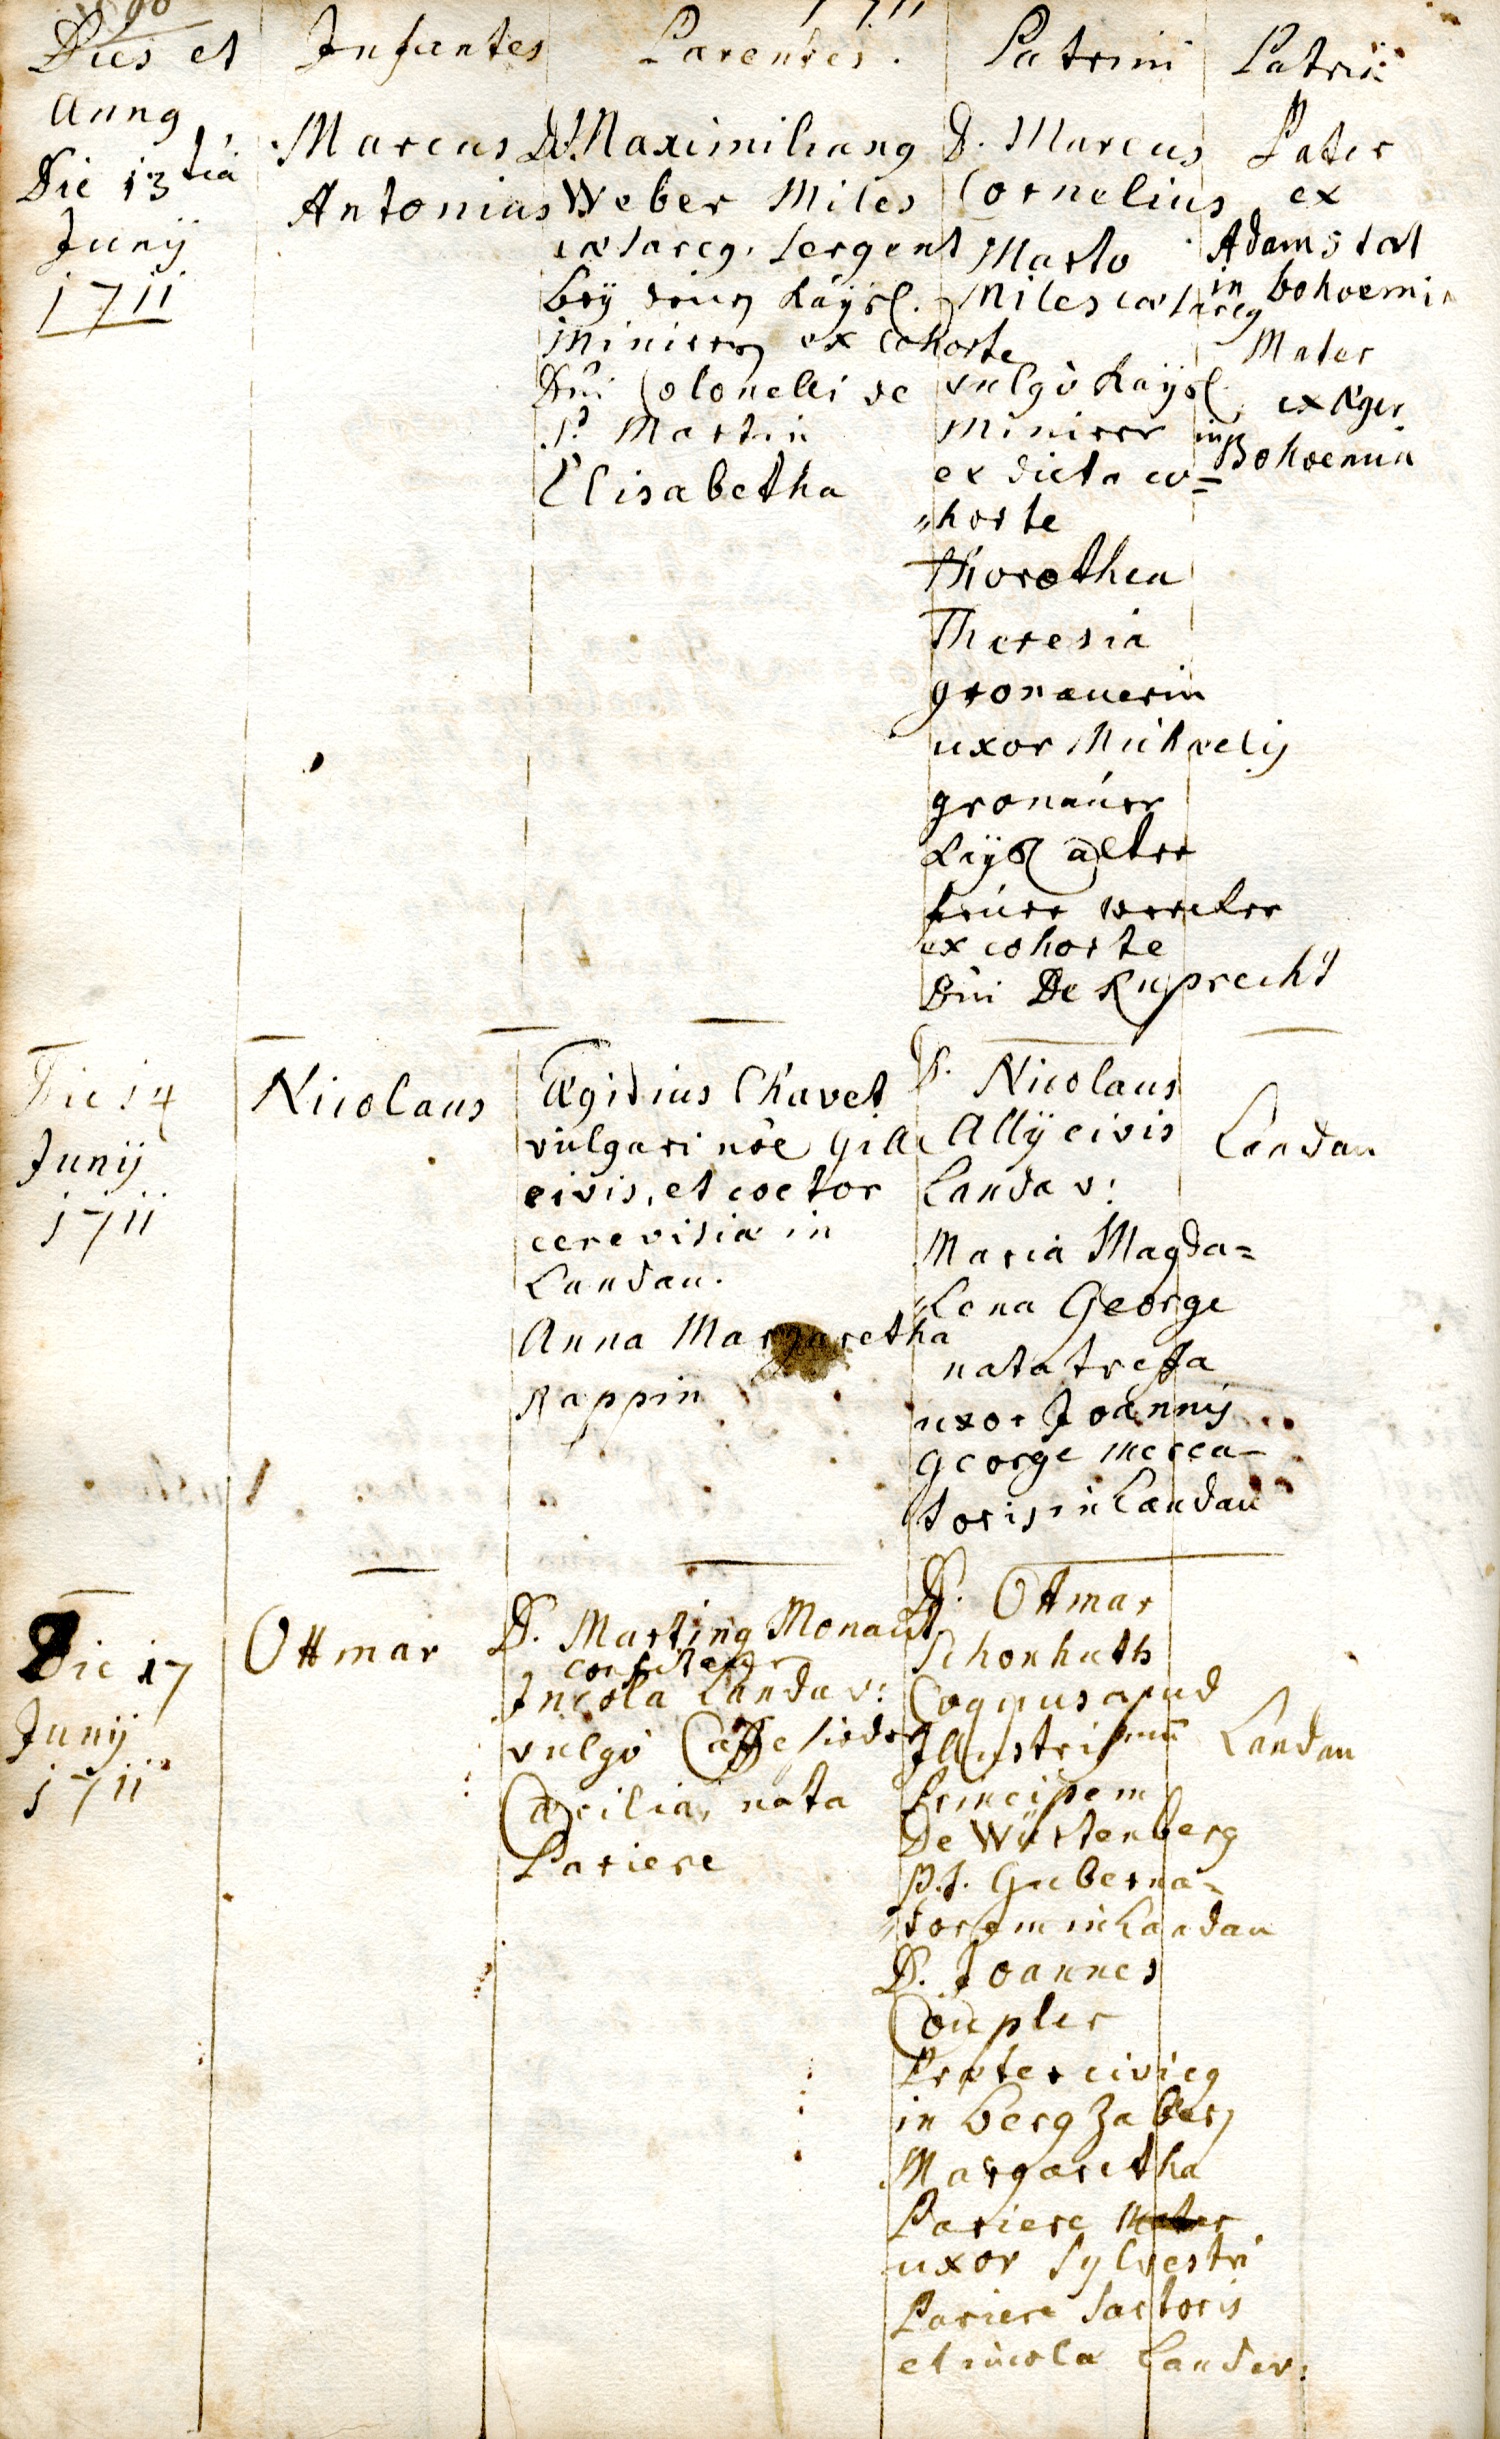 1711
Dies et
Anng
Infantes
Parentes.
Patrini
Patria
Die 13 tia
Junij
1711
Marcus
Antonius
D. Maximiliang
Weber Miles
cæsareg. sergent
bey Käysl.
Minierer ex cohorte
Dni Colonelli de
St Martin
Elisabetha
D. Marcus
Cornelius
Marto
Miles cæsareg
vulgò Kaijsl.
Minierer
ex dicta co=
"horte
Thorothea
Theresia
gronauerin
uxor Michaelis
gronauer
Kijsl alter
feuer wercker
ex cohorte
Dni De Ruprecht
Pater
ex
Adamstat
in bohoemia
Mater
ex Æger
in
Bohoemia
Die 14
Junij
1711
Nicolaus
Ægidius Chavet
vulgari nõe Gille
civis, et coctor
cerevisiæ in
Landau.
Anna Margaretha
Rappin
D. Nicolaus
Ally civis
Landav:
Maria Magda=
"lena George
nata tressa
uxor Joannis
George merca-
toris in Landau
Landau
Die 17
Junij
1711
Ottmar
D. Marting Monaut
Incola Landav:
vulgò Caffesieder
Cæcilia, nata
Pariere
D. Ottmar
Schonhuth
Coquus apud
Illustrissmũ
Principem
De Würtenberg
p.t. Guberna=
"torem in Landau
D. Joannes
Coupler
Præter civicg
in bergzabern
Margaretha
Pariere Mater
uxor Sylvestri
Pariere Sartoris
et incola Landav:
Landau